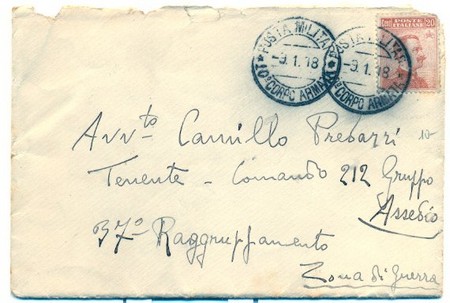 POSTA MILITARE
-9.1.18
10° CORPO ARMATA
POSTA MILITARE
-9.1.18
10° CORPO ARMATA
POSTE ITALIANE
20
Avv.to Camillo Predazzi
Tenente - Comando 212 Gruppo
Assedio
37° Raggruppamento
Zona di Guerra